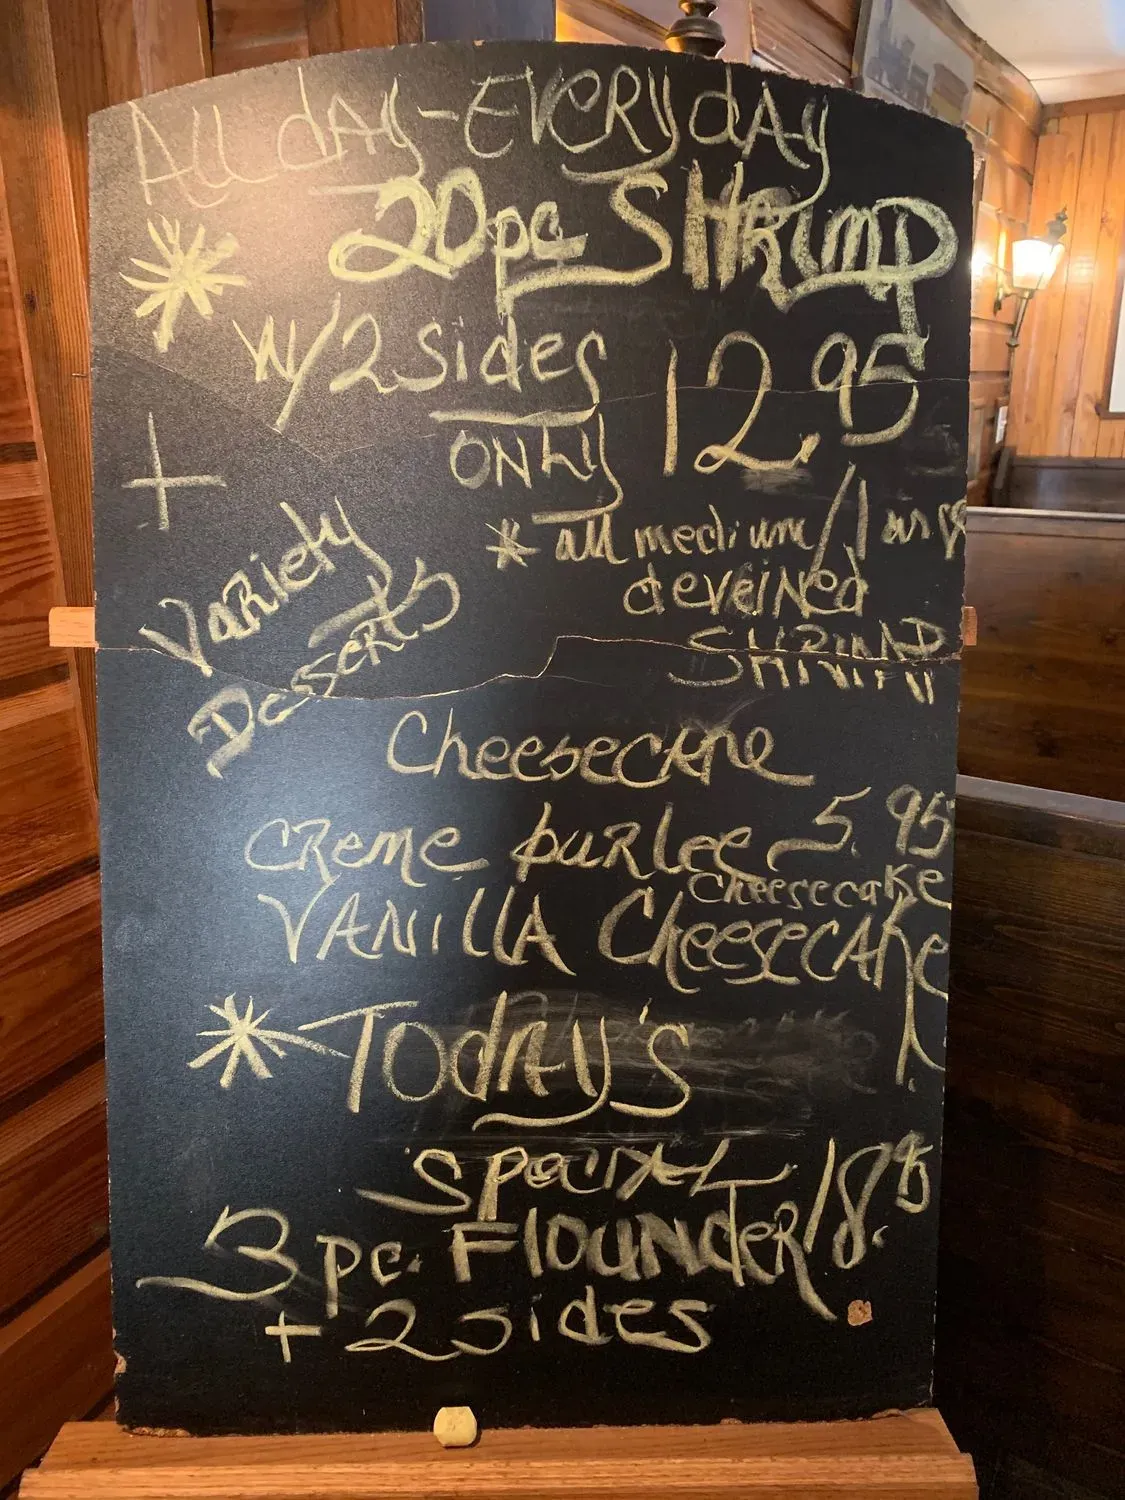 All dAy-EVERydAy
* 20pc SHRimp
w/2 sides
ONly 12.95
+
Variety
Desserts
* all medium/large
deveiNed
SHRIMP
Cheesecake
CReme burlee 5.95
Cheesecake
VANillA CheesecAke
* TodAy's
SpeciAL
3 pc. FlouNdeR 18.95
+ 2 sides